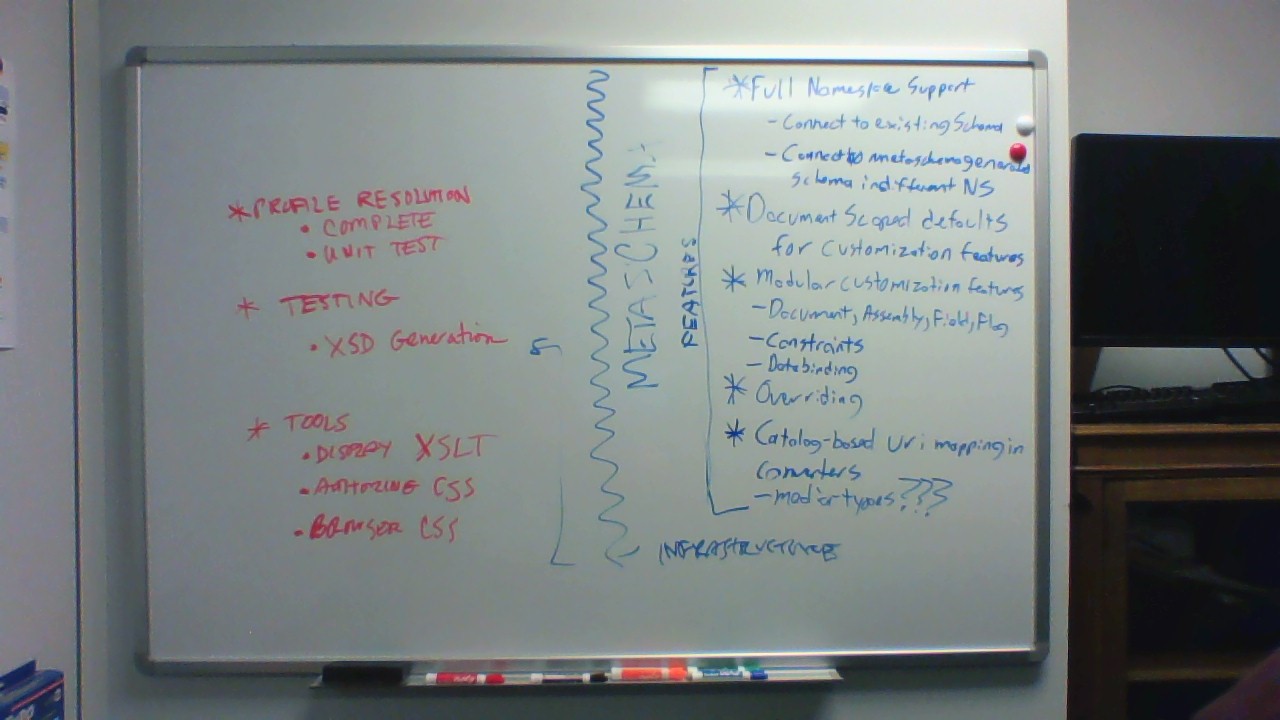 * PROFILE RESOLUTION
• COMPLETE
• UNIT TEST
* TESTING
• XSD Generation
* TOOLS
• DISPLAY XSLT
• AUTHORING CSS
• BROWSER CSS
METASCHEMA
FEATURES
* Full Namespace Support
- Connect to existing Schema
- Connect to metaschema generated
schema in different NS
* Document Scoped defaults
for customization features
* Modular customization features
- Document, Assembly, Field, Flag
- Constraints
- Databinding
* Overriding
* Catalog-based Uri mapping in
Converters
- media types???
INFRASTRUCTURE